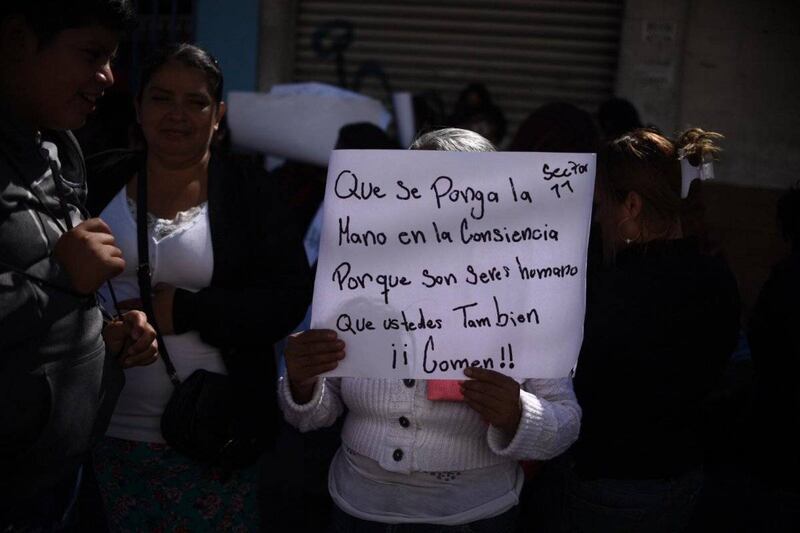 Que se Ponga la Sector 11
Mano en la Consiencia
Porque son seres humano
Que ustedes Tambien
¡¡ Comen!!